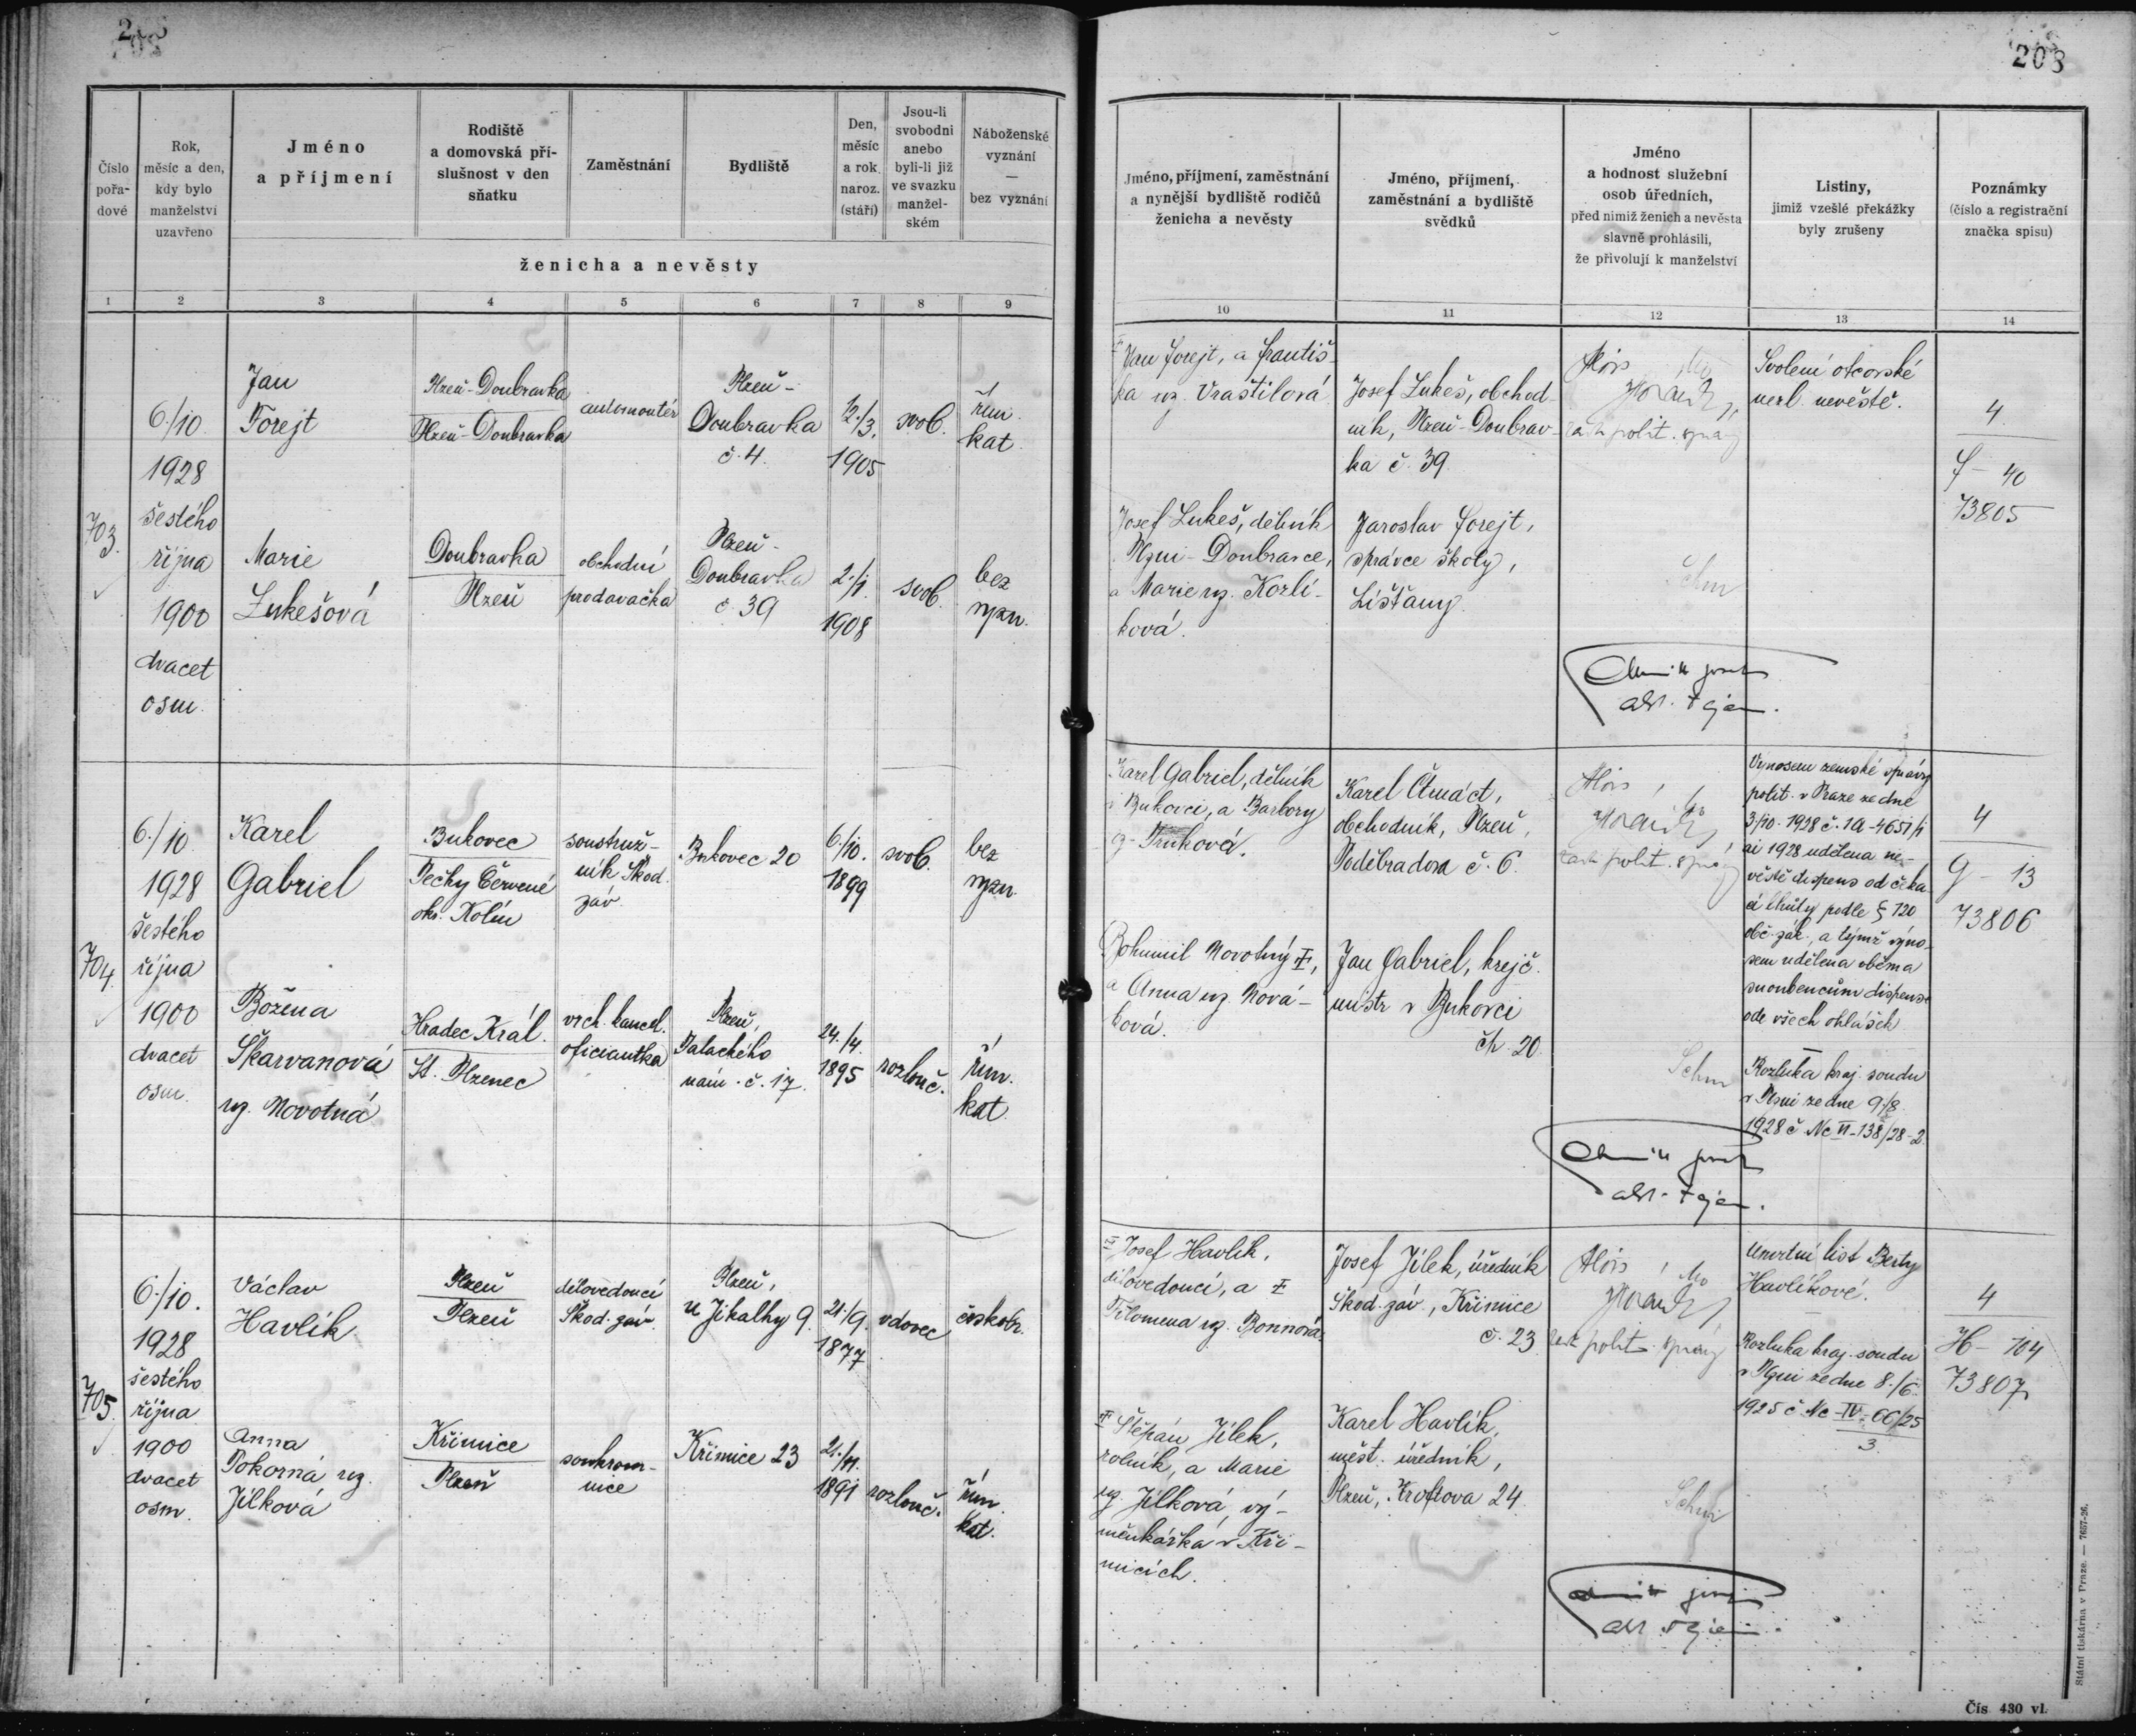 208
Číslo pořa- dové
Rok, měsíc a den, kdy bylo manželství uzavřeno
Jméno a příjmení
Rodiště a domovská pří- slušnost v den sňatku
Zaměstnání
Bydliště
Den, měsíc a rok naroz. (stáří)
Jsou-li svobodni anebo byli-li již ve svazku manžel- ském
Náboženské vyznání — bez vyznání
ženicha a nevěsty
1 2 3 4 5 6 7 8 9
703.
6./10.
1928
šestého
října
1900
dvacet
osm.
Jan
Forejt
Plzeň-Doubravka
Plzeň-Doubravka
automontér
Plzeň-
Doubravka
č. 4.
12./3.
1905
svob.
řím.
kat.
Marie
Lukešová
Doubravka
Plzeň
obchodní
prodavačka
Plzeň-
Doubravka
č. 39
2./1.
1908
svob.
bez
vyzn.
704.
6./10.
1928
šestého
října
1900
dvacet
osm.
Karel
Gabriel
Bukovec
Pečky Červené
okr. Kolín
soustruž-
ník Škod.
záv.
Bukovec 20
6./10.
1899
svob.
bez
vyzn.
Božena
Škarvanová
roz. Novotná
Hradec Král.
St. Plzenec
vrch. kancel.
oficiantka
Plzeň,
Palackého
nám. č. 17.
24./4.
1895
rozlouč.
řím.
kat.
705.
6./10.
1928
šestého
října
1900
dvacet
osm.
Václav
Havlík
Plzeň
Plzeň
dílovedoucí
Škod. záv.
Plzeň,
U Jikalky 9.
21./9.
1877
vdovec
českobr.
Anna
Pokorná roz.
Jílková
Křimice
Plzeň
soukrom-
nice
Křimice 23
21./11.
1891
rozlouč.
řím.
kat.
208
Jméno, příjmení, zaměstnání a nynější bydliště rodičů ženicha a nevěsty
Jméno, příjmení, zaměstnání a bydliště svědků
Jméno a hodnost služební osob úředních, před nimiž ženich a nevěsta slavně prohlásili, že přivolují k manželství
Listiny, jimiž vzešlé překážky byly zrušeny
Poznámky (číslo a registrační značka spisu)
10 11 12 13 14
Jan Forejt, a Františ-
ka roz. Vraštilová
Josef Lukeš, obchod-
ník, Plzeň-Doubrav-
ka č. 39.
Alois
polit. správy
Svolení otcovské
nezl. nevěstě.
4.
F - 40
73805
Josef Lukeš, dělník
Plzni-Doubravce,
a Marie roz. Kozlí-
ková.
Jaroslav Forejt,
správce školy,
Líšťany.
Karel Gabriel, dělník
v Bukovci, a Barbory
Karel Čtmáct,
obchodník, Plzeň,
Poděbradova č. 6.
Alois
polit. správy
Výnosem zemské správy
polit. v Praze ze dne
3/10. 1928 č. 1a-4651/1
ai 1928 udělena ne-
věstě dispens od čeka-
cí lhůty podle § 120
obč. zák., a týmž výno-
sem udělena oběma
snoubencům dispens
ode všech ohlášek
Rozluka kraj. soudu
v Plzni ze dne 9./8.
1928 č. Nc VI-138/28-2
4
G - 13
73806
Bohumil Novotný †,
a Anna roz. Nová-
ková.
Jan Gabriel, krejč.
mistr v Bukovci
čp. 20.
Josef Havlík,
dílovedoucí, a †
Filomena roz. Bonnová
Josef Jílek, úředník
Škod. záv., Křimice
č. 23
Alois
polit. správy
Úmrtní list Berty
Havlíkové.
Rozluka kraj. soudu
v Plzni ze dne 8./6.
1925 č. Nc IV-66/25
3.
4
H - 104
73807
† Štěpán Jílek,
rolník, a Marie
roz. Jílková, vý-
měnkářka v Kři-
micích.
Karel Havlík,
měst. úředník,
Plzeň, Kroftova 24.
Státní tiskárna v Praze. — 7657-26.
Čís 430 vl.